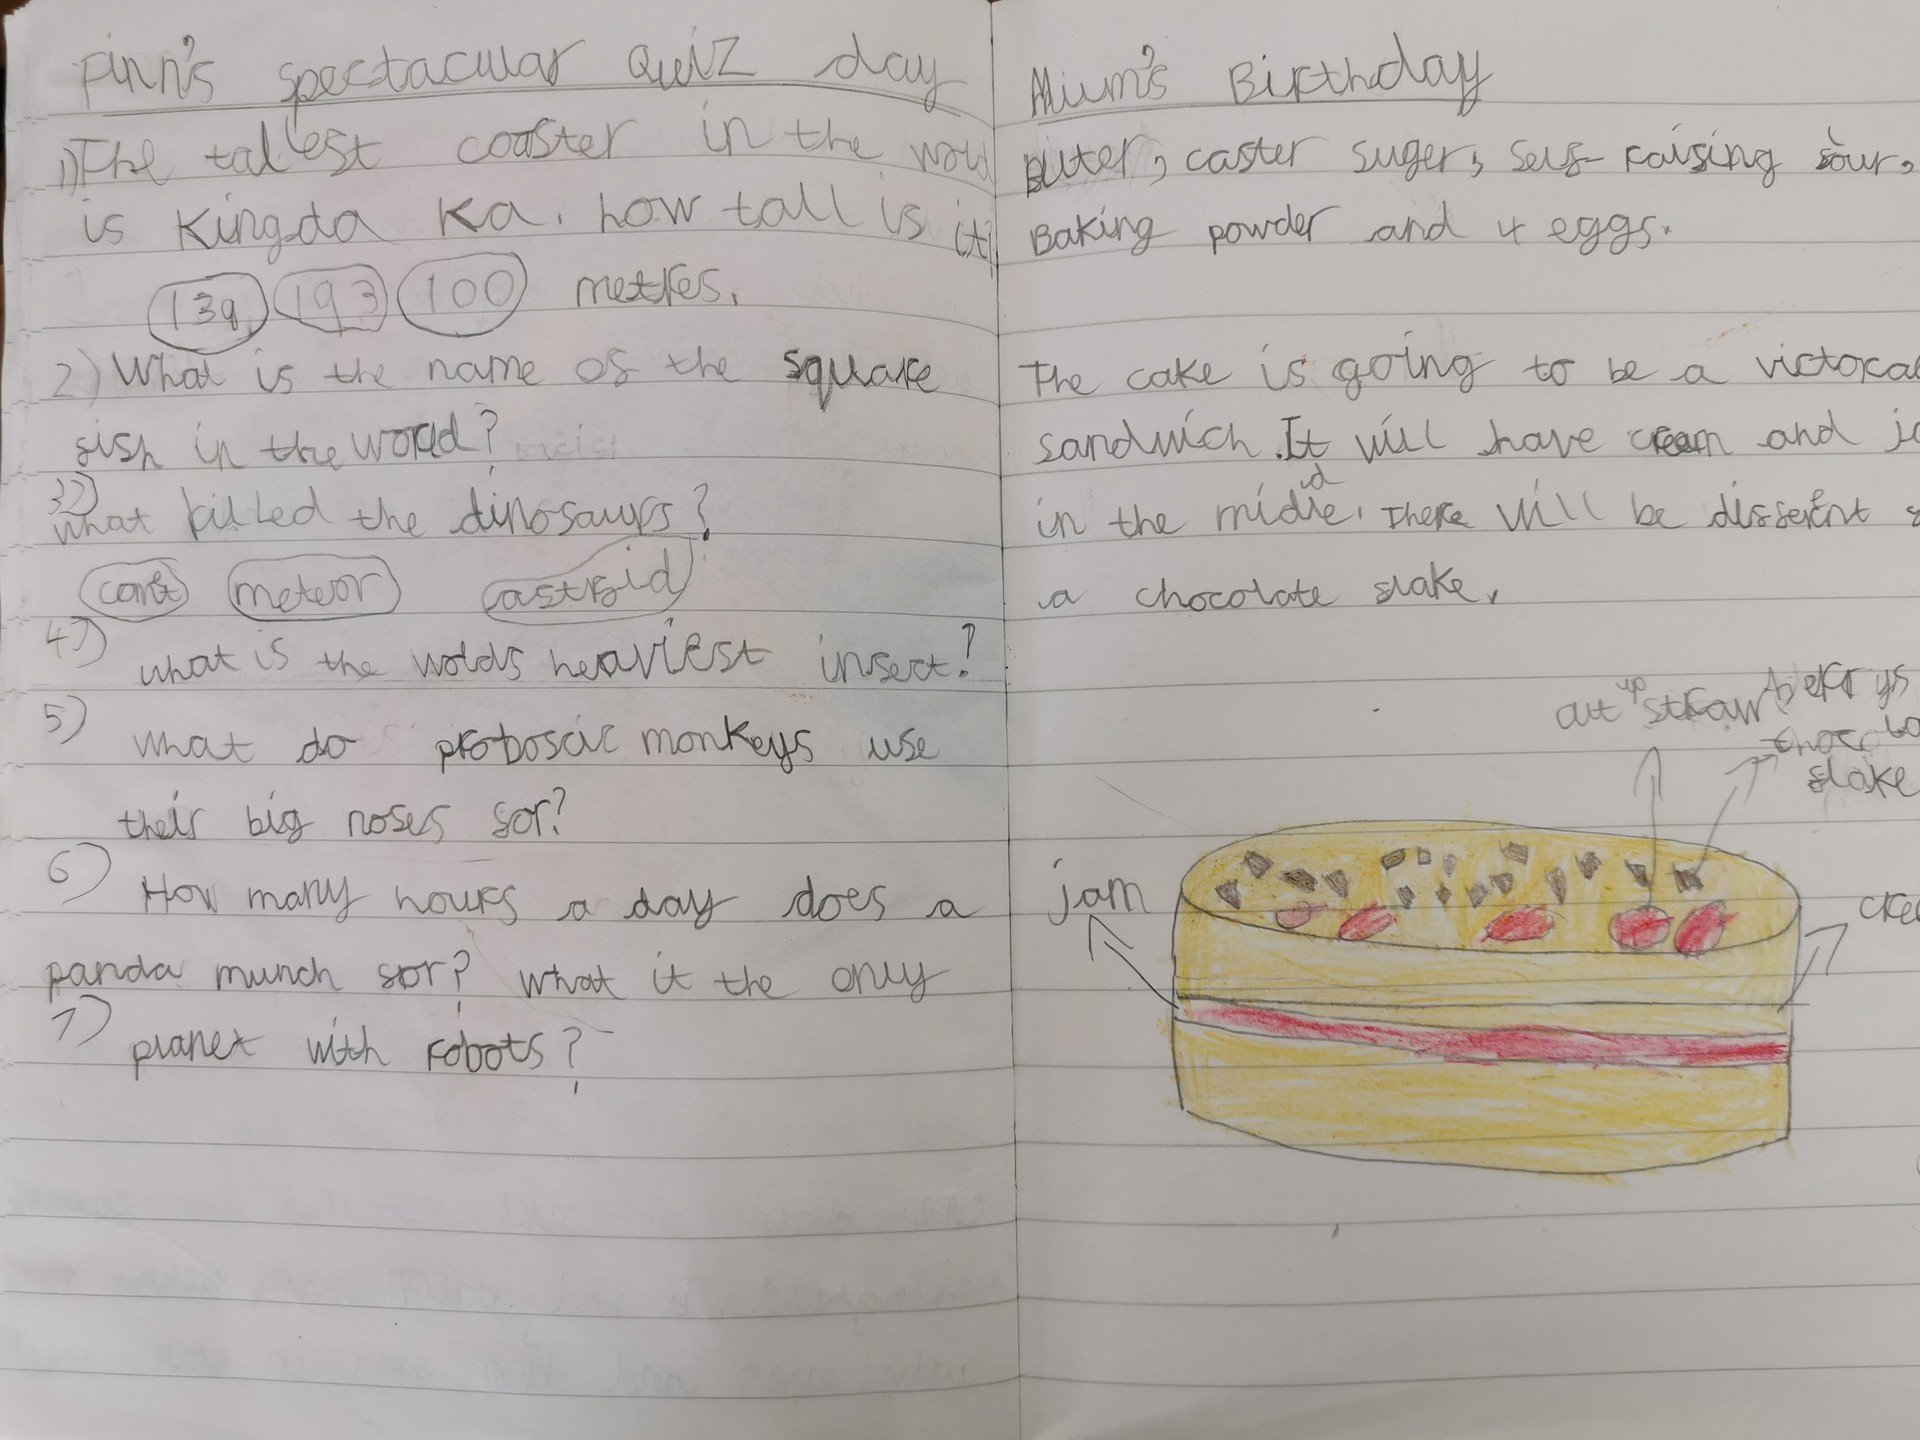 Finn's spectacular Quiz day
1) The tallest coaster in the worl
is Kingda Ka. how tall is it
139 193 100 metres.
2) What is the name of the square
fish in the world?
3) what killed the dinosaurs?
meteor astroid
4) what is the wolds heaviest insect?
5) what do proboscic monkeys use
their big noses for?
6) How many hours a day does a
panda munch for? what it the only
7) planet with robots?
Mum's Birthday
Buter, caster suger, self-raising
Baking powder and 4 eggs.
The cake is going to be a
sandwich. It will have cream and
in the midle. There will be different
a chocolate flake.
cut up strawberrys
flake
jam